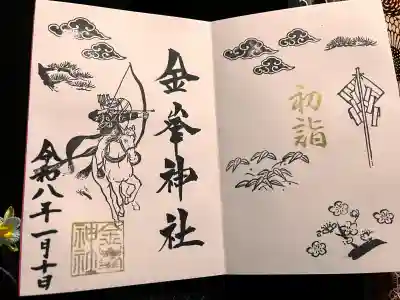 初詣
金峯神社
令和八年一月十日
金峯
神社